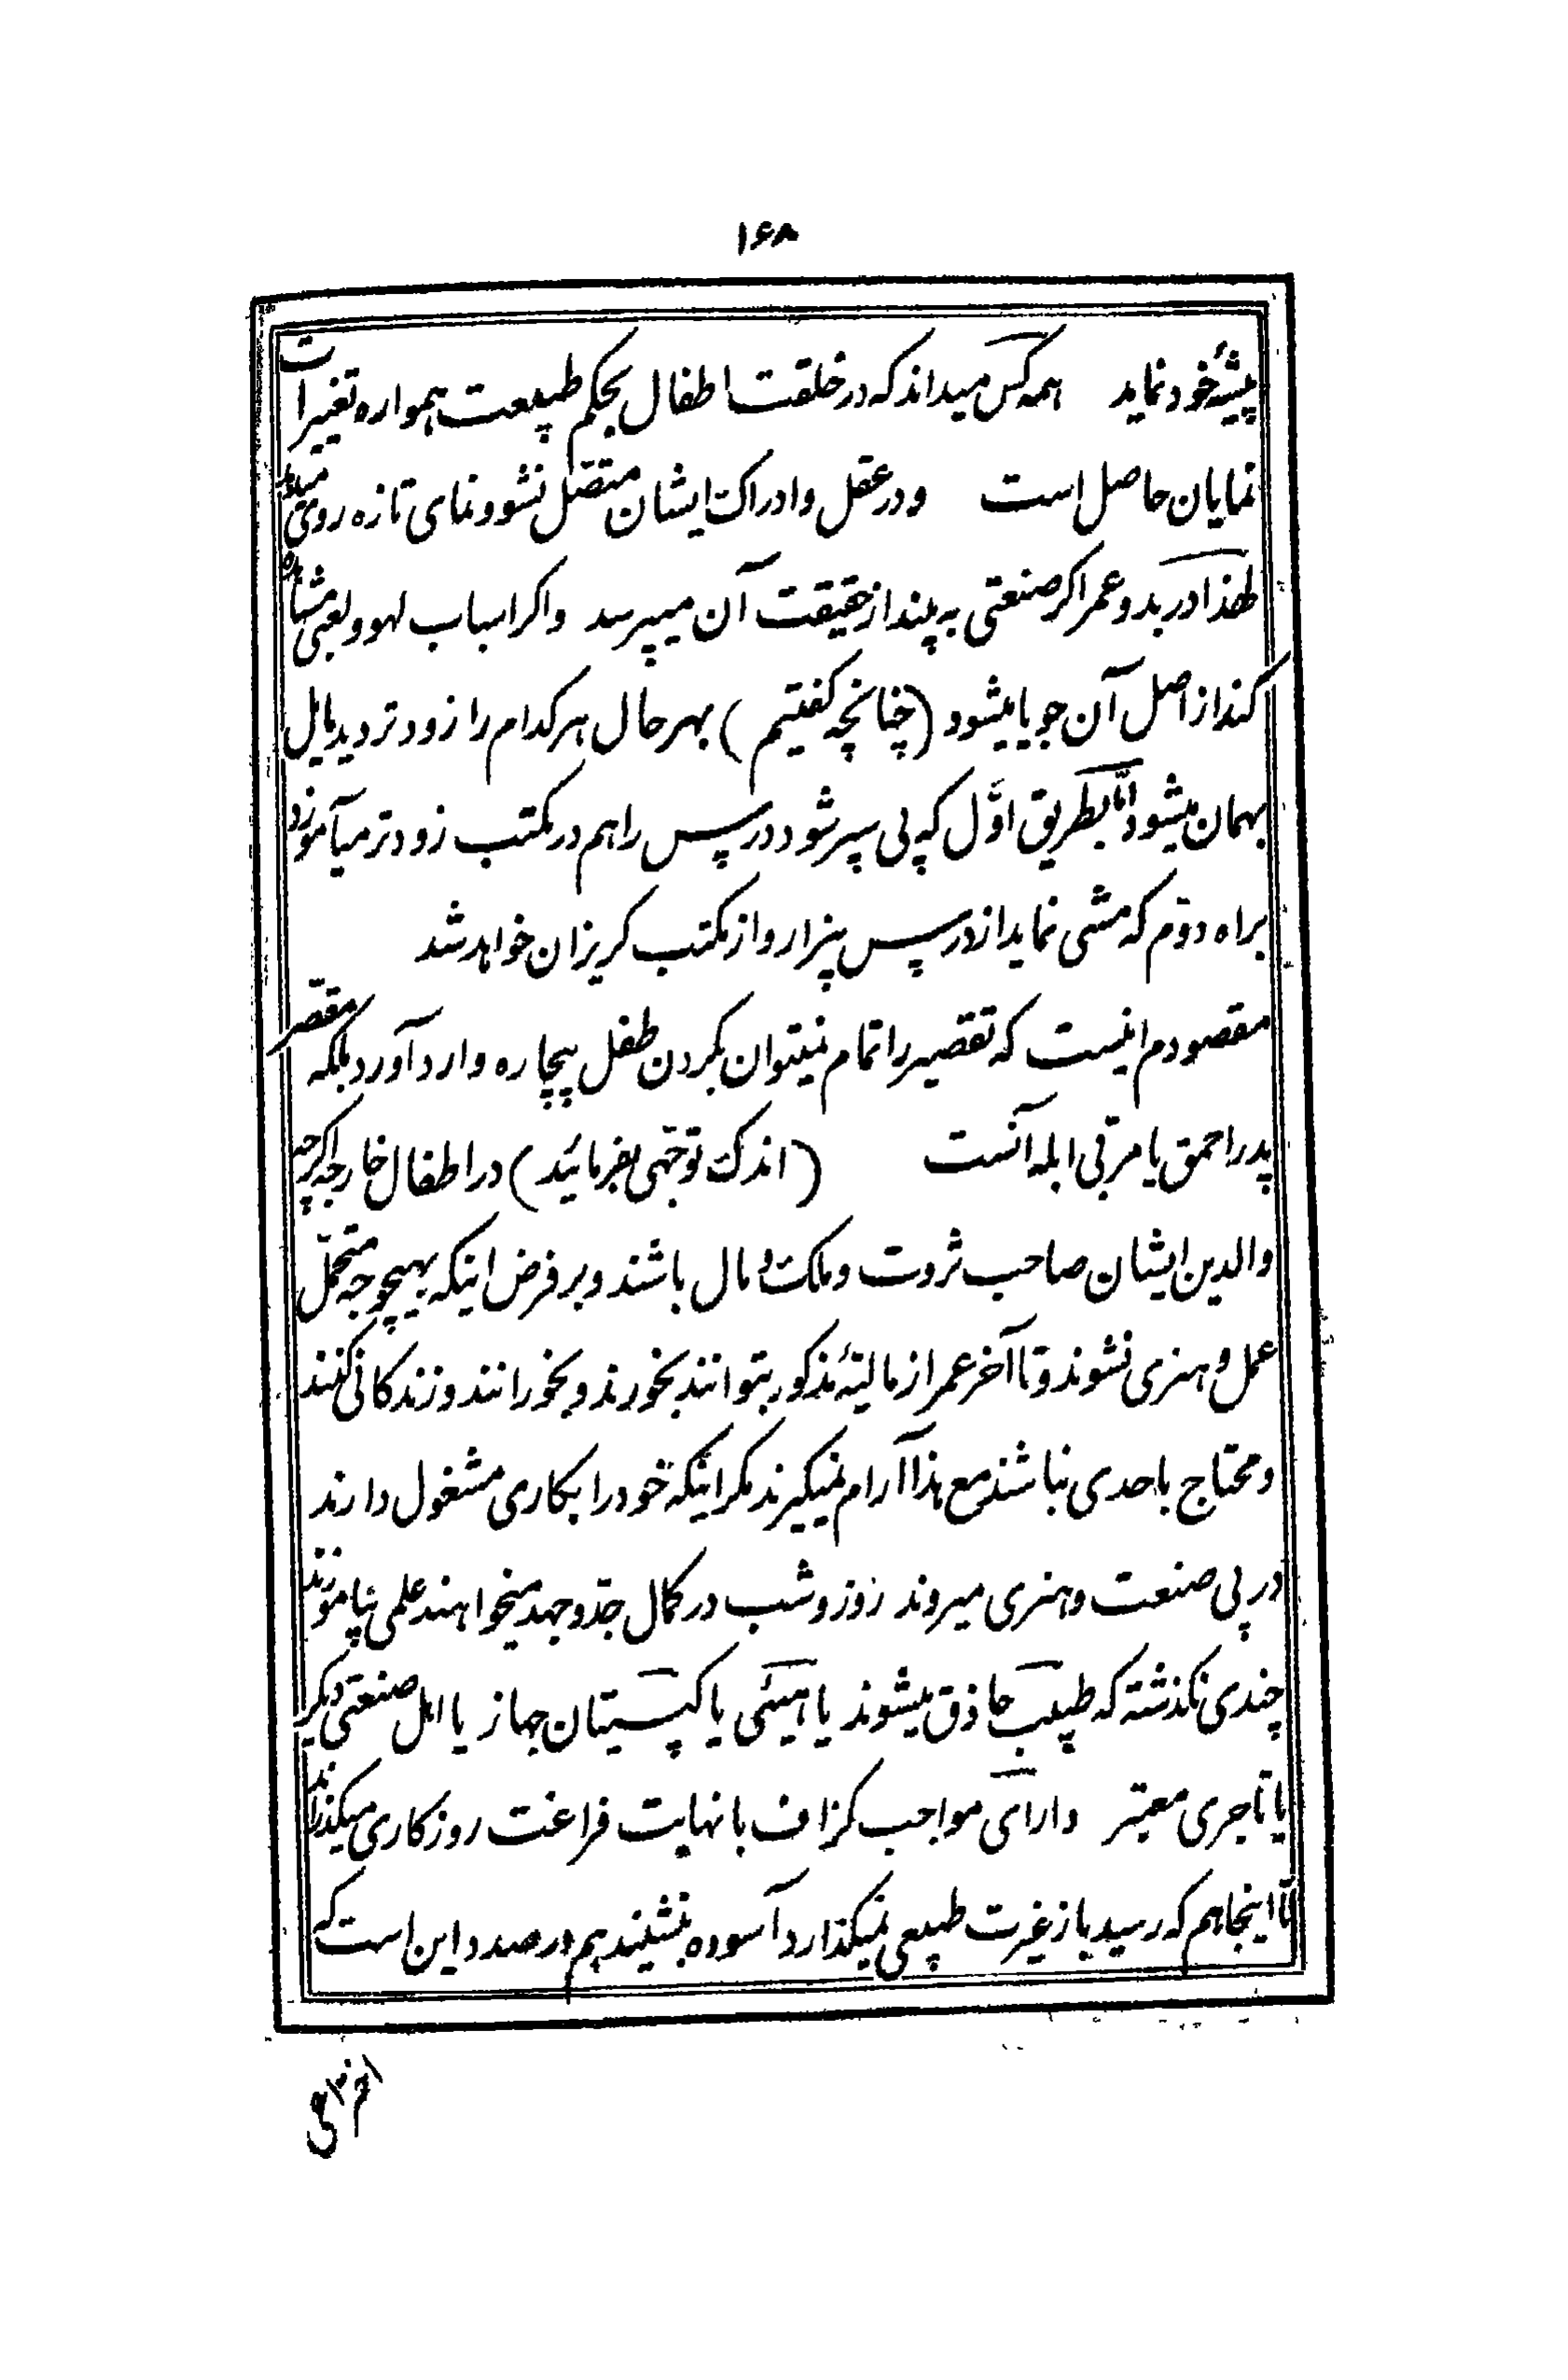 ۱۶۸
پیشهٔ خود نماید همه کس میداند که در خلقت اطفال بحکم طبیعت همواره تغییرات
نمایان حاصل است و در عقل و ادراک ایشان متصل نشو و نمای تازه روی میدهد
لهذا در بدو عمر اکر صنعتی به بیند از حقیقت آن میپرسد و اکر اسباب لهو و لعبی مشاهده
کند از اصل آن جویا میشود (چنانچه کفتیم) بهر حال هر کدام را زودتر دید مایل
بهمان میشود امّا بطریق اوّل که پی سپر شود درس را هم در مکتب زودتر میآموزد
براه دوّم که مشی نماید از درس بیزار و از مکتب کریزان خواهد شد
مقصودم اینست که تقصیر را تمام نمیتوان بکردن طفل بیچاره وارد آورد بلکه مقصّر
پدر احمق یا مربّی ابله آنست (اندک توجّهی بفرمائید) در اطفال خارجه اکرچه
والدین ایشان صاحب ثروت و ملک و مال باشند و بر فرض اینکه بهیچوجه متحمّل
عمل و هنری نشوند و تا آخر عمر از مالیّهٔ مذکور بتوانند بخورند و بخورانند و زندکانی کنند
و محتاج باحدی نباشند مع هذا آرام نمیکیرند مکر اینکه خود را بکاری مشغول دارند
در پی صنعت و هنری میروند روز و شب در کمال جدّ و جهد میخواهند علمی بیاموزند
چندی نکذشته که طبیب حاذق میشوند یا هیئی یا کپیتان جهاز یا اهل صنعتی دیکر
یا تاجری معتبر دارای مواجب کزاف با نهایت فراغت روزکاری میکذرانند
تا اینجا هم که رسید باز غیرت طبیعی نمیکذارد آسوده بنشینند هم در صدد این است که